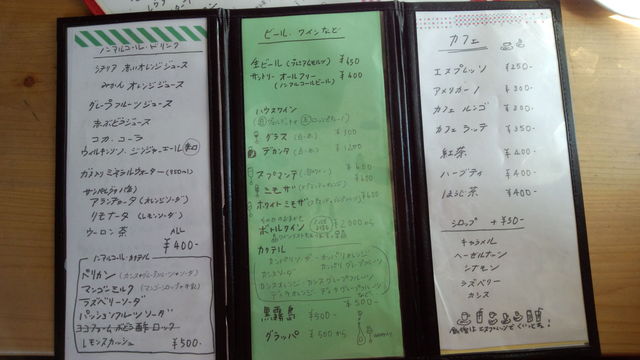 ノンアルコール・ドリンク
シチリア 赤いオレンジジュース
みかん オレンジジュース
グレープフルーツジュース
赤ぶどうジュース
コカ・コーラ
ウィルキンソン・ジンジャーエール 辛口
ガス入りミネラルウォーター (750ml)
サンペレグリノ
アランチャータ (オレンジソーダ)
リモナータ (レモンソーダ)
ウーロン茶 ALL
¥400-
ノンアルコールカクテル
ペリカン
マンゴーミルク
ラズベリーソーダ
パッションフルーツソーダ
レモンスカッシュ ¥500-
ビール・ワインなど
生ビール (プレミアムモルツ) ¥650
サントリー オールフリー ¥400
(ノンアルコールビール)
ハウスワイン
グラス (赤・白) ¥500
デカンタ (赤・白) ¥1200
スプマンテ
ミモザ
ホワイトミモザ
ボトルワイン ¥2000から
カクテル
カンパリソーダ・カンパリオレンジ・
カンパリグレープフルーツ
カシスソーダ
カシスオレンジ・カシスグレープフルーツ
など
¥500-
黒霧島 ¥500-
グラッパ ¥500から
カフェ
エスプレッソ ¥250-
アメリカーノ ¥300-
カフェ ルンゴ ¥300-
カフェ ラッテ ¥350-
紅茶 ¥400-
ハーブティ ¥400-
ほうじ茶 ¥400-
シロップ +¥50-
キャラメル
ヘーゼルナッツ
シナモン
ラズベリー
カシス